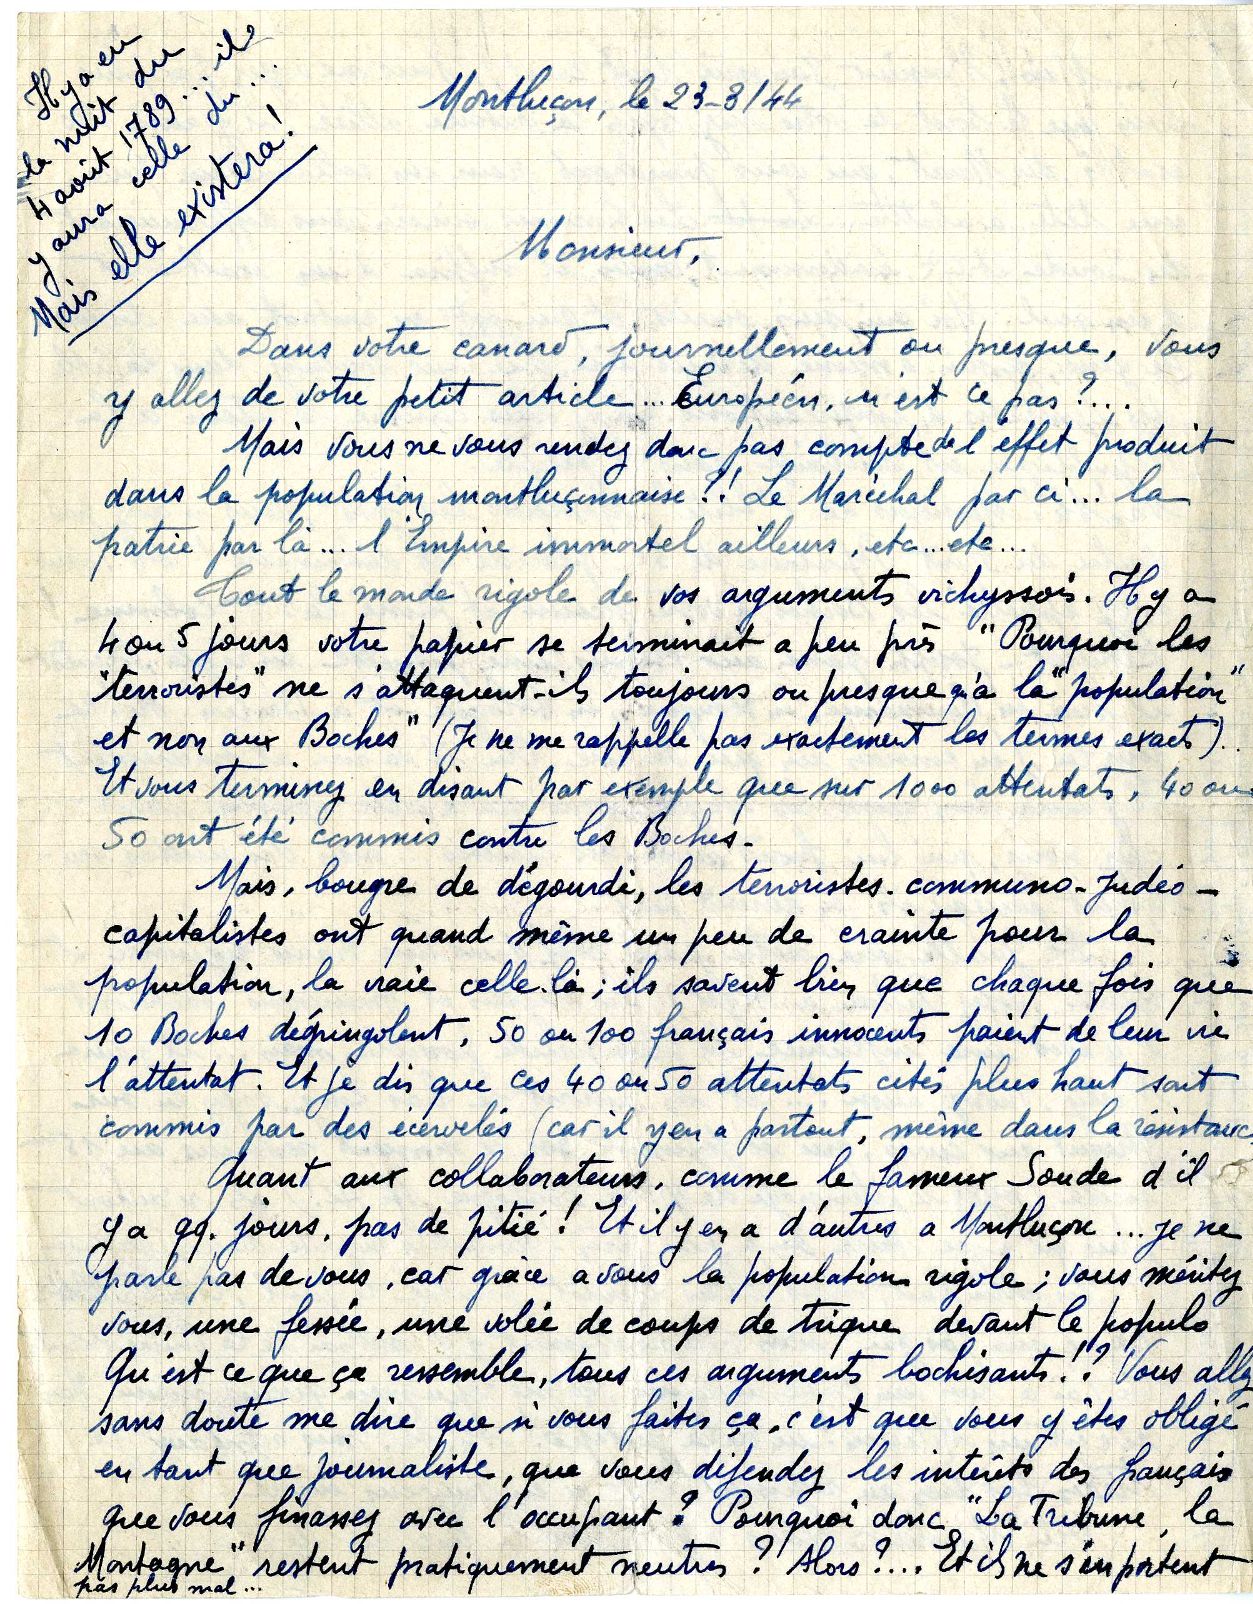 Il y a eu
la nuit du
4 août 1789... il
y aura celle du...
Mais elle existera!
Montluçon, le 23-3/44
Monsieur,
Dans votre canard, journellement ou presque, vous
y allez de votre petit article... Européen, n'est ce pas?...
Mais vous ne vous rendez donc pas compte de l'éffet produit
dans la population montluçonnaise?! Le Maréchal par ci... la
patrie par là... l'Empire immortel ailleurs, etc...etc...
Tout le monde rigole de vos arguments vichyssois. Il y a
4 ou 5 jours votre papier se terminait a peu près "Pourquoi les
"terroristes" ne s'attaquent-ils toujours ou presque qu'a la "population"
et non aux Boches" (Je ne me rappelle pas exactement les termes exacts)..
Et vous terminez en disant par exemple que sur 1000 attentats, 40 ou
50 ont été commis contre les Boches.
Mais, bougre de dégourdi, les terroristes-communo-judéo-
capitalistes ont quand même un peu de crainte pour la
population, la vraie celle-là; ils savent bien que chaque fois que
10 Boches dégringolent, 50 ou 100 français innocents paient de leur vie
l'attentat. Et je dis que ces 40 ou 50 attentats cités plus haut sont
commis par des écervelés (car il y en a partout, même dans la résistance
Quant aux collaborateurs, comme le fameux Soude d'il
y a qq. jours, pas de pitié! Et il y en a d'autres a Montluçon ... je ne
parle pas de vous, car grâce a vous la population rigole; vous méritez
vous, une fessée, une volée de coups de trique devant le populo
Qu'est ce que ça ressemble, tous ces arguments bochisants!? Vous allez
sans doute me dire que si vous faites ça, c'est que vous y êtes obligé
en tant que journaliste, que vous défendez les intérêts des français
que vous finassez avec l'occupant? Pourquoi donc "La Tribune, la
Montagne" restent pratiquement neutres? Alors?... Et ils ne s'en portent
pas plus mal...